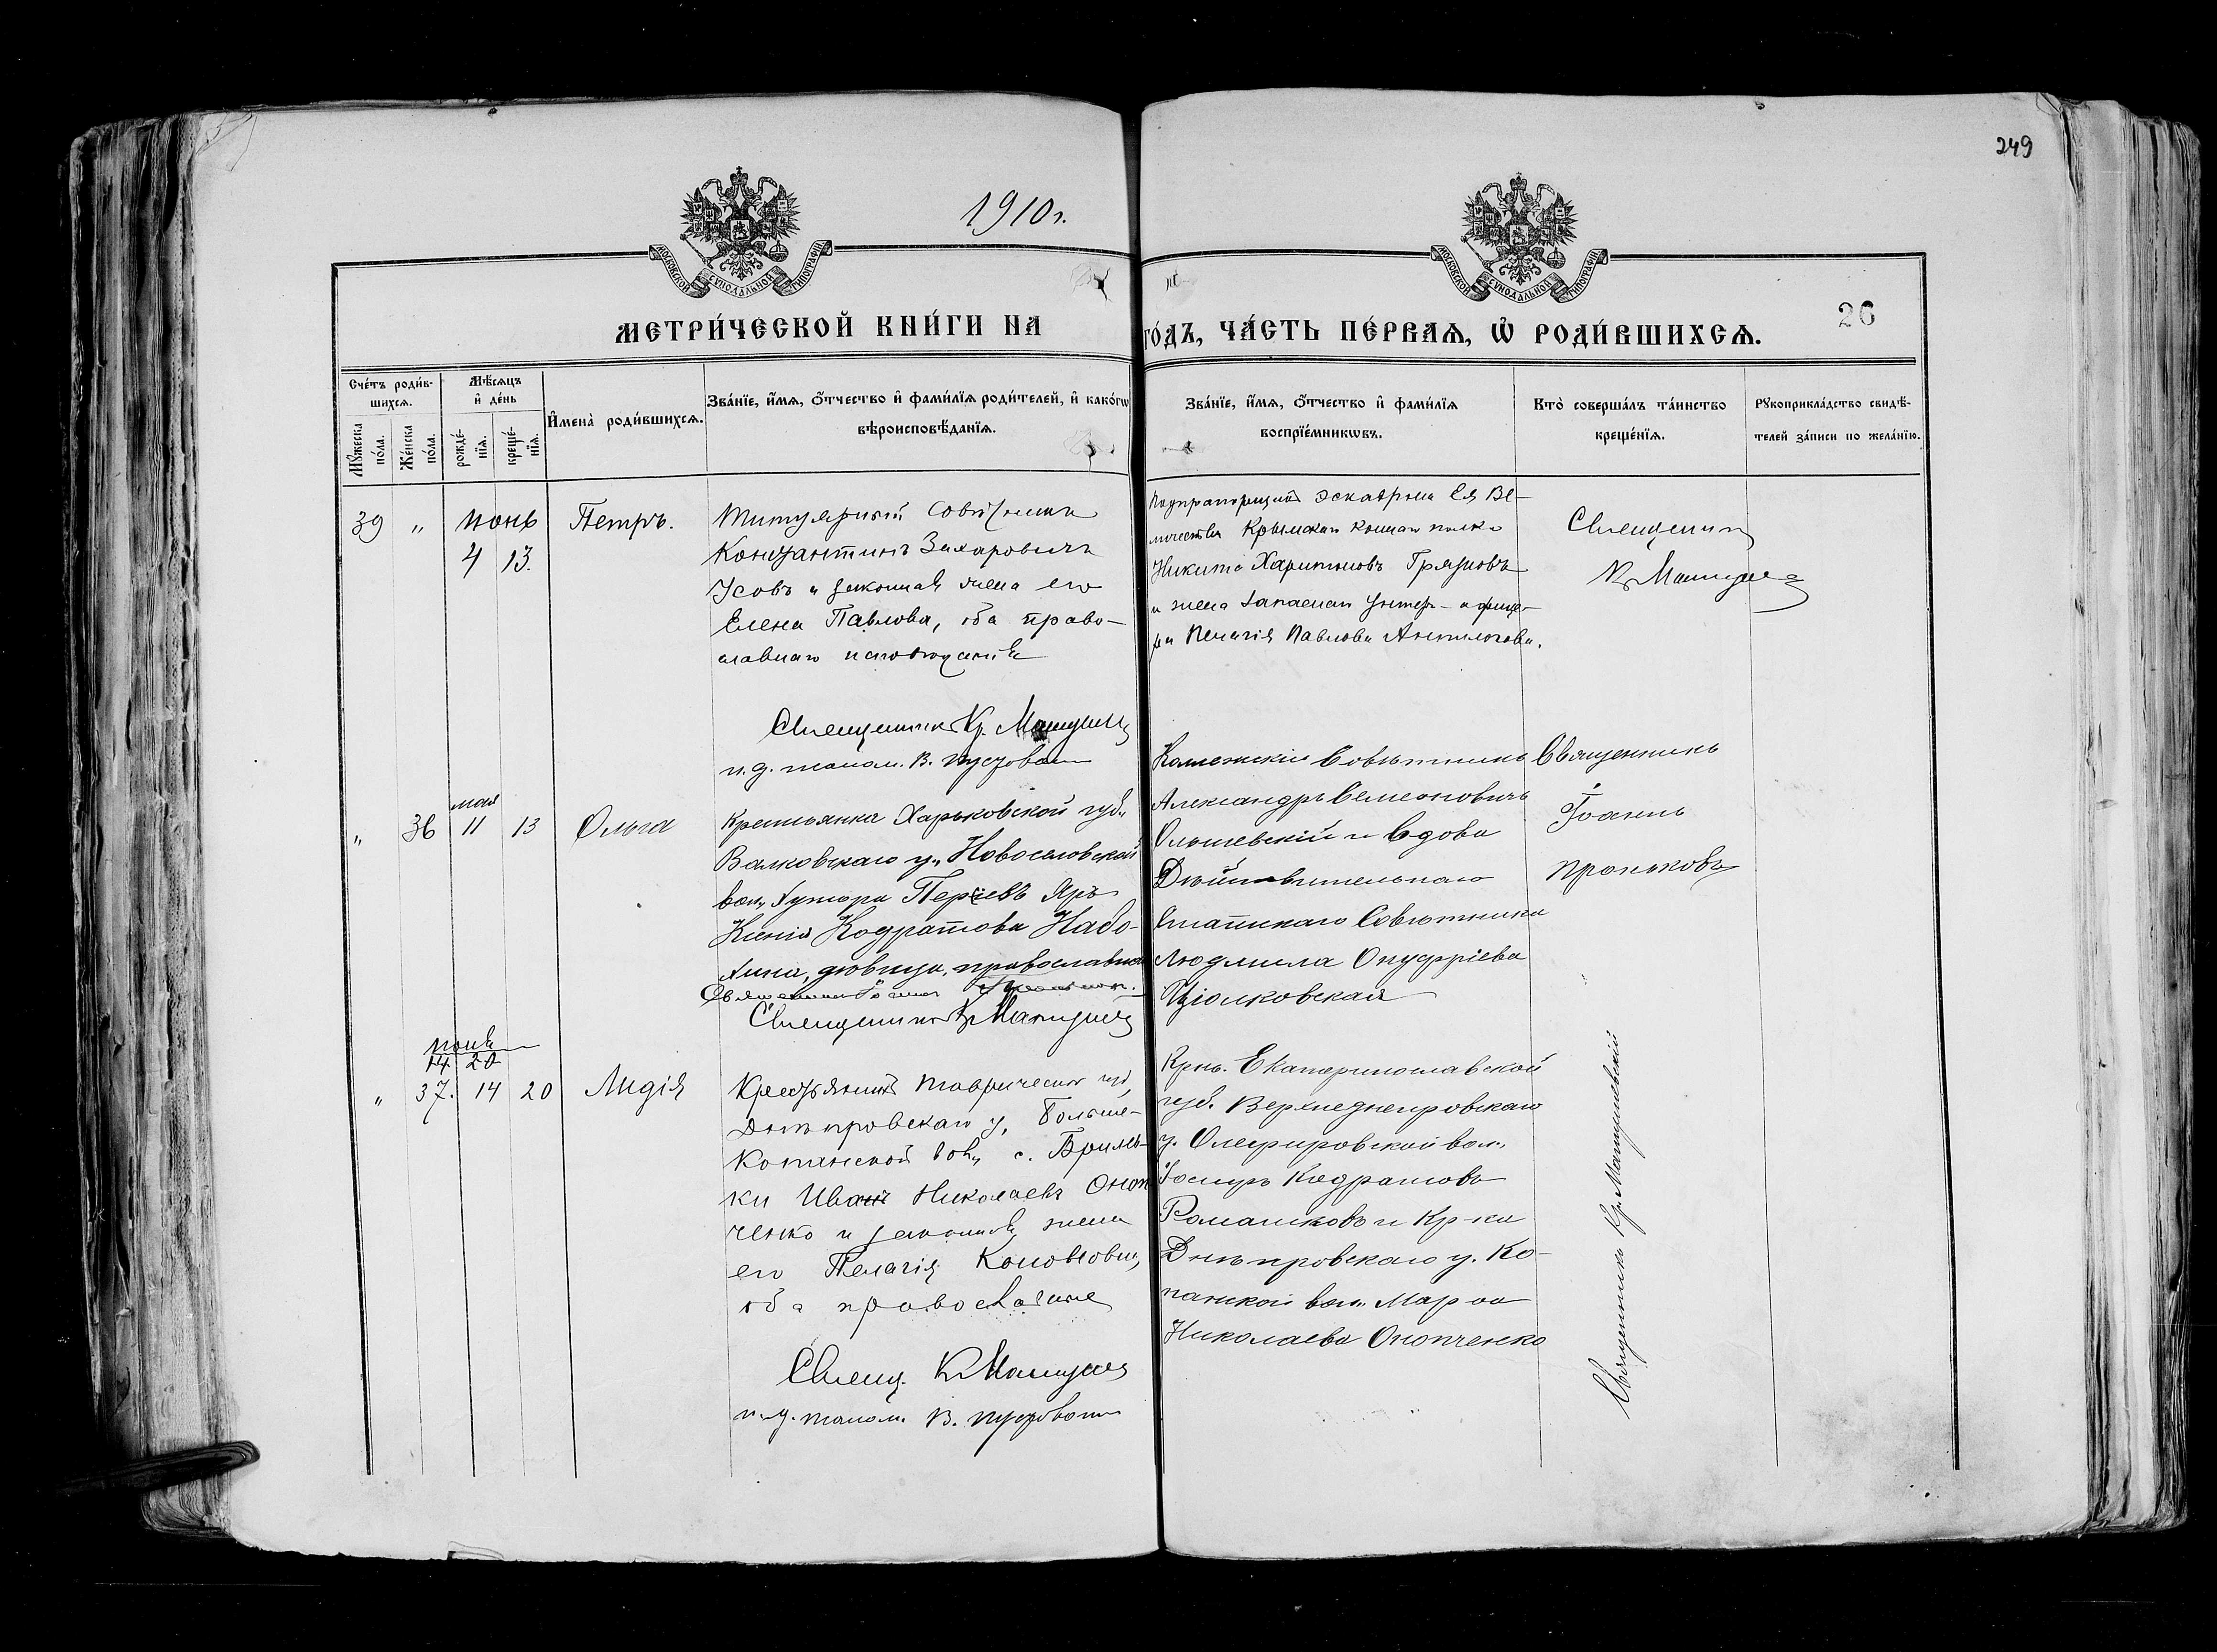 249
1910г.
МОСКОВСКОЙ СѴНОДАЛЬНОЙ ТИПОГРАФІИ
МОСКОВСКОЙ СѴНОДАЛЬНОЙ ТИПОГРАФІИ
26
МЕТРИ́ЧЕСКОЙ КНИ́ГИ НА
ГО́ДЪ, ЧА́СТЬ ПЕ́РВАѦ, Ѡ҆ РОДИ́ВШИХСѦ.
Сче́тъ роди́в-
шихсѧ.
Мꙋ́жеска по́ла.
Же́нска по́ла.
Мѣ́сѧцъ и҆ де́нь
рожде́-
нїѧ.
креще́-
нїѧ.
И҆мена̀ роди́вшихсѧ.
Зва́нїе, и҆́мѧ, ѻ҆́тчество и҆ фами́лїѧ роди́телей, и҆ како́гѡ
вѣроисповѣ́данїѧ.
Зва́нїе, и҆́мѧ, ѻ҆́тчество и҆ фами́лїѧ
воспрїе́мникѡвъ.
Кто̀ соверша́лъ та́инство
креще́нїѧ.
Рꙋкоприкла́дство свидѣ́-
телей за́писи по жела́нїю.
39 „ Іюнь
4 13.
Петръ.
Титулярный Совѣтникъ
Константинъ Захаровичъ
Усовъ и законная жена его
Елена Павлова, оба право-
славнаго исповѣданія
Священникъ Кр.
и. д. псалом. В.
Подпрапорщикъ Эскадрона Ея Ве-
личества Крымскаго коннаго полка
Никита Харитоновъ Грязновъ
и жена запаснаго Унтер-офице-
ра Пелагія Павлова
Священникъ
К.
„ 36 мая 11 13
Ольга
Крестьянка Харьковской губ.,
Валковскаго у., Новоселовской
вол., хутора Яръ
Ксенія Кодратова Набо-
кина, дѣвица, православная
Священникъ
Священникъ
Коллежскій Совѣтникъ
Александръ Семеновичъ
Ольшевскій и вдова
Дѣйствительнаго
Статскаго Совѣтника
Людмила Онуфріева
Ціолковская
Священникъ
Іоаннъ
Проньковъ
Іюнь
14 20
„ 37. 14 20
Лидія
Крестьянинъ Таврической губ.,
Днѣпровскаго у., Больше-
Копанской вол., с. Брилев-
ки Иванъ Николаевъ Оноп
ченко и законная жена
его Пелагія Кононова,
оба православные
Свящ. К
и. д. псалом. В.
Крнъ. Екатеринославской
губ. Верхнеднепровскаго
у. вол.,
Іосифъ Кодратовъ
Ромашковъ и Кр-ка
Днѣпровскаго у. Ко-
панской вол. Марѳа
Николаева Онопченко
Священникъ Кр.